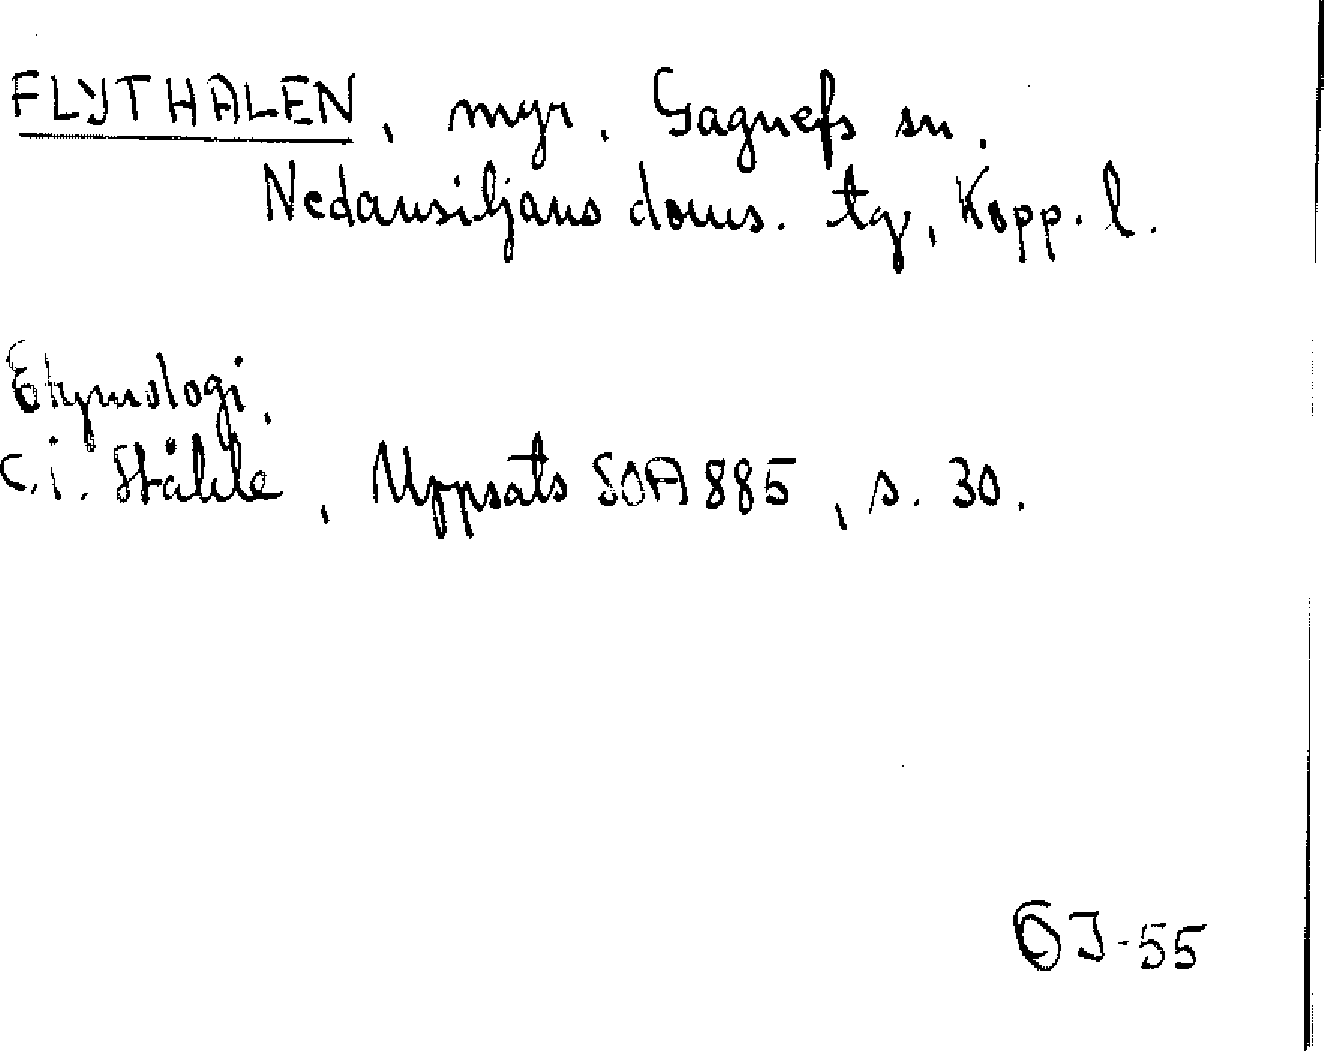 FLYTHALEN, myr. Gagnefs sn.
Nedansiljans doms. tg, Kopp. l.
Etymologi.
C.I. Ståhle, Uppsats SOA 885, s. 30.
ÖJ-55